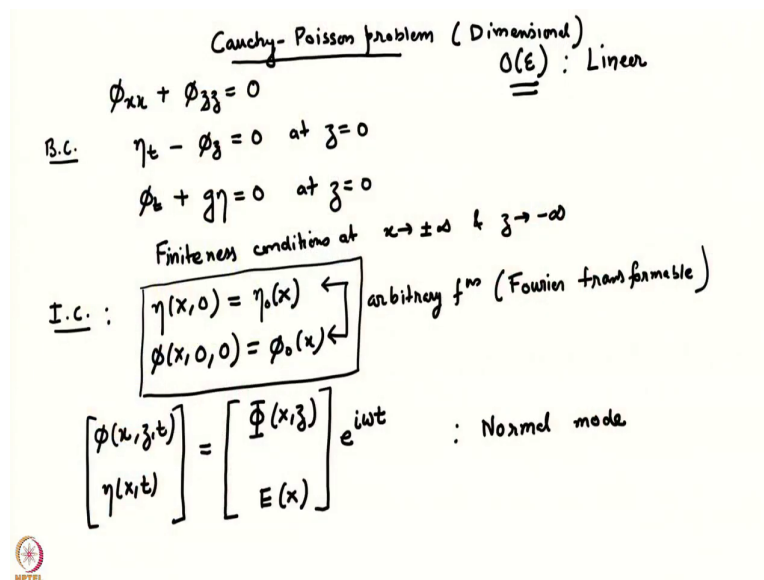 Cauchy-Poisson problem (Dimensional)
O(ε) : Linear
ϕxx + ϕzz = 0
B.C. ηt - ϕz = 0 at z=0
ϕt + gη = 0 at z=0
Finiteness conditions at x→ ±∞ & z→ -∞
I.C. : η(x,0) = η₀(x)
ϕ(x,0,0) = ϕ₀(x) arbitrary fⁿ (Fourier transformable)
[ϕ(x,z,t) η(x,t)] = [Φ(x,z) E(x)] e^{iωt} : Normal mode
NPTEL